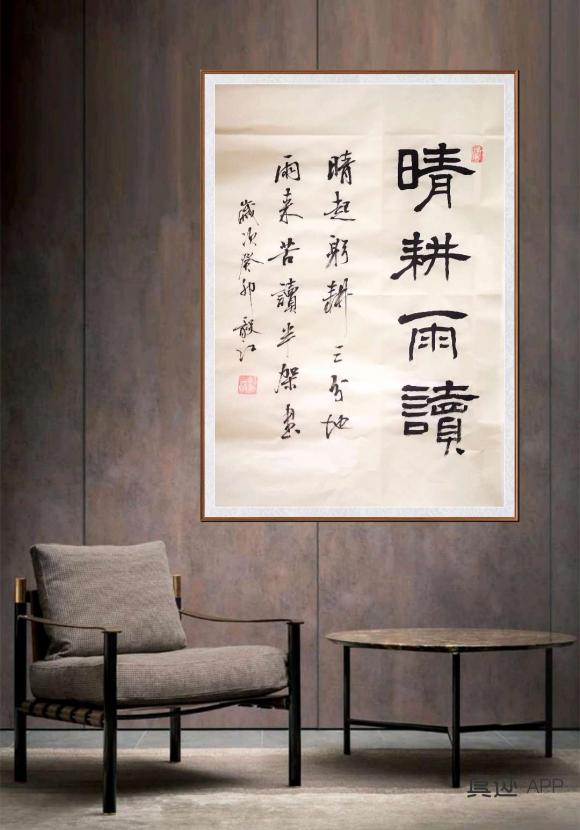 晴耕雨讀
晴起躬耕三分地
雨来苦讀半架書
歲次癸卯毅江
真迹 APP